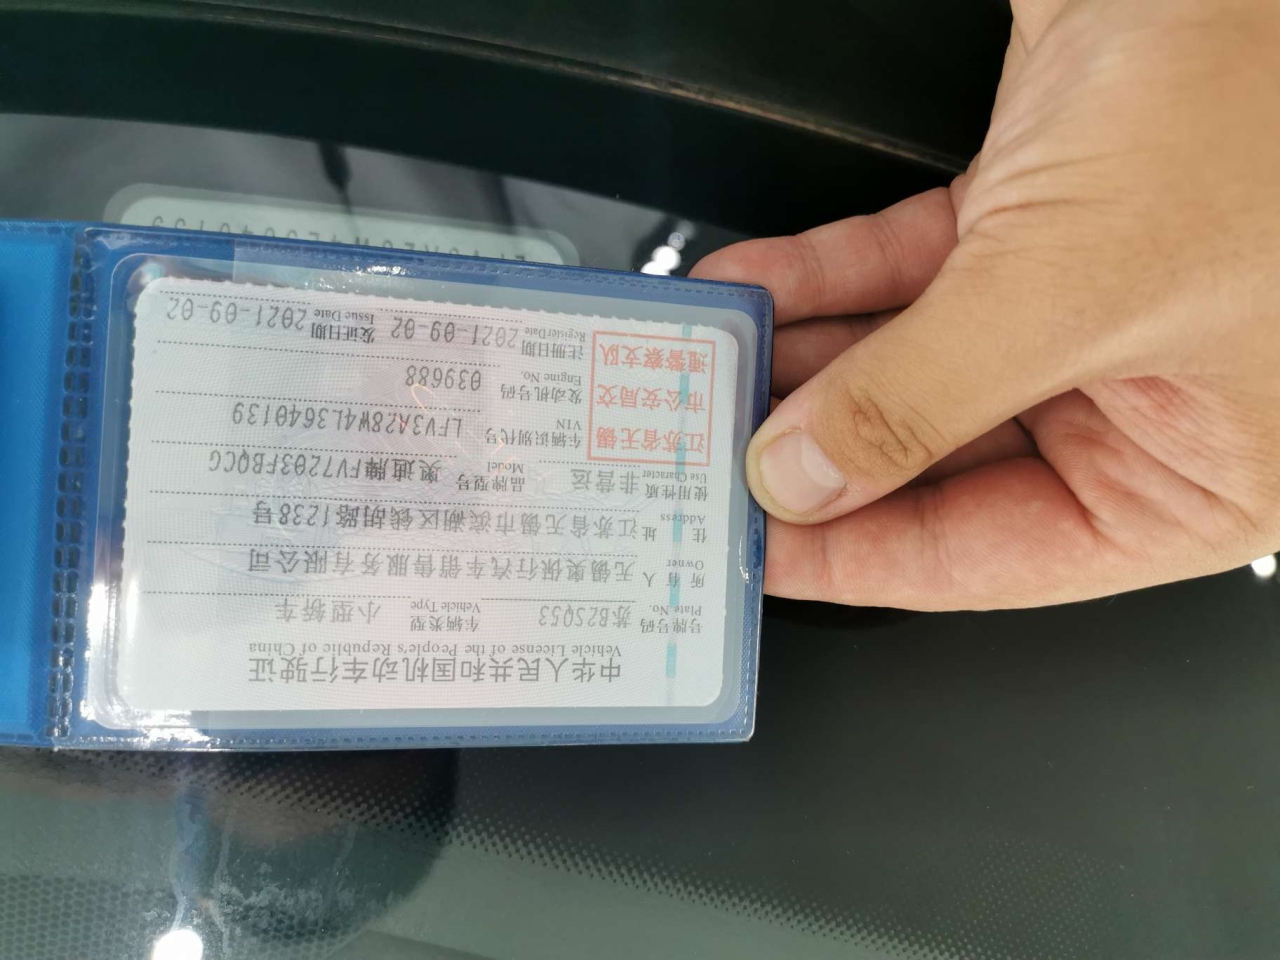 中华人民共和国机动车行驶证
Vehicle License of the People's Republic of China
号牌号码 苏B2SQ53 车辆类型 小型轿车
Plate No. Vehicle Type
所有人 无锡奥保行汽车销售服务有限公司
Owner
住址 江苏省无锡市滨湖区钱胡路1238号
Address
使用性质 非营运 品牌型号 奥迪牌FV7203FBQCG
Use Character Model
江苏省无锡
市公安局交
通警察支队
车辆识别代号 LFV3A28W4L3640139
VIN
发动机号码 039688
Engine No.
注册日期 2021-09-02 发证日期 2021-09-02
Register Date Issue Date